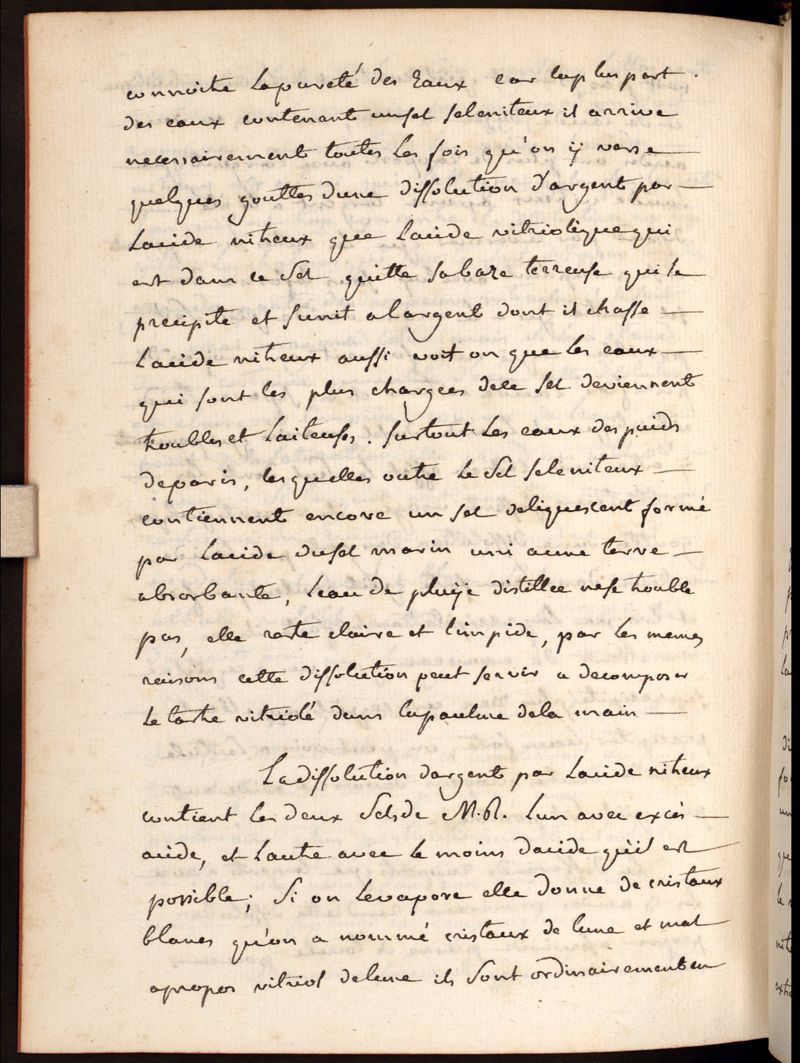 connoitre la pureté des Eaux car la plus part
des eaux contenant un sel seleniteux il arrive
necessairement toutes les fois qu'on ij verse
quelques gouttes d'une dissolution d'argent par
Lacide nitreux que Lacide vitriolique qui
est dans ce Sel quitte sa baze terreuse qui se
precipite et s'unit a l'argent dont il chasse
Lacide nitreux aussi voit on que les eaux
qui sont les plus chargées de ce sel deviennent
troubles et laiteuses. surtout les eaux des puids
de paris, lesquelles outre le Sel seleniteux
contiennent encore un sel deliquescent formé
par Lacide du sel marin uni a une terre
absorbante, L'eau de pluije distillee ne se trouble
pas, elle reste claire et limpide, par les memes
raisons cette dissolution peut servir a decomposer
Le tartre vitriolé dans la paulme de la main
La dissolution d'argent par Lacide nitreux
contient les deux Sels de M.R. L'un avec excès
acide, et L'autre avec le moins d'acide qu'il est
possible; Si on L'evapore elle donne de cristaux
blancs qu'on a nommé cristaux de lune et mal
apropos vitriol de lune ils sont ordinairement en